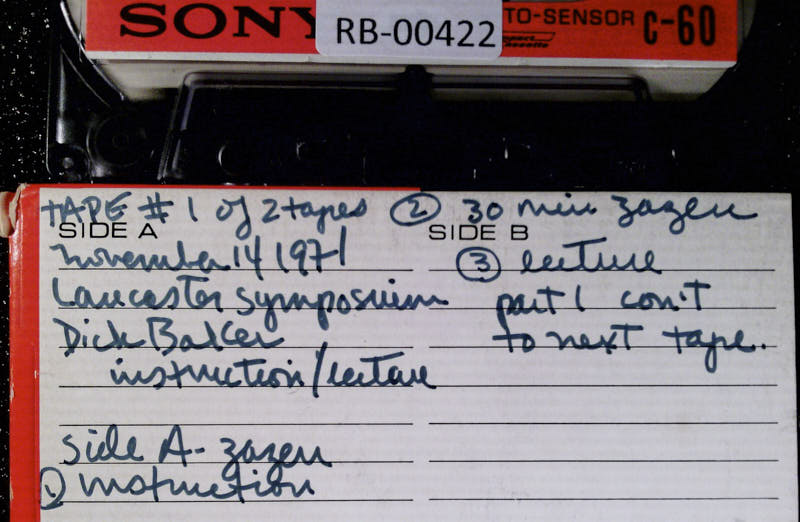 SONY RB-00422 TO-SENSOR C-60
TAPE # 1 of 2 tapes
SIDE A
november 14 1971
Lancaster symposium
Dick Baker
instruction/lecture
side A- zazen
① instruction
② 30 min zazen
SIDE B
③ lecture
part 1 con't
to next tape.